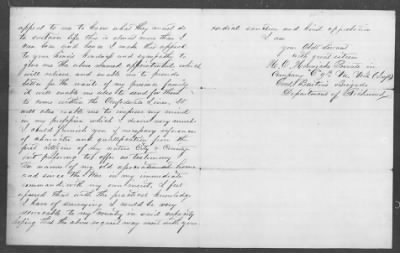 appeal to me to know what they must do
to sustain life this is almost more than I
can bear and hence I make this appeal
to your honors kindness and sympathy to
give me the above named appointment which
will relieve and enable me to provide
better for the wants of my precious family
it will enable me also to send for them
to come within the Confederate Lines. It
will also enable me to improve my mind
in my profession which I desire very much
I could furnish you if necessary references
of character and qualification from the
first citizens of my native City & County
but passing to offer as testimony
the names of my old approximate home
and since the War in my immediate
command with my own merit. I feel
assured that with the practical knowledge
I have of surveying I would be very
serviceable to my country in said capacity
hoping that the above request may meet with your
cordial sanction and kind approbation
I am
your Obdt Servant
with great esteem
Private in
Company
Brigade
Department of Richmond